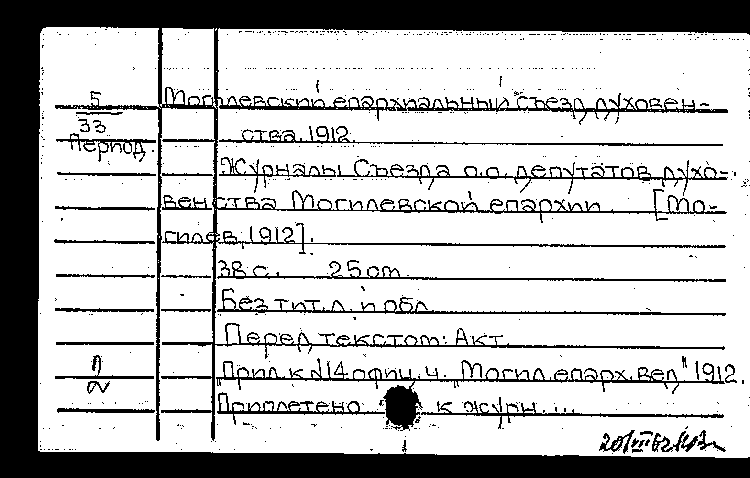 5
33
Период.
Могилевский епархиальный съезд духовен-
ства. 1912.
Журналы Съезда о.о. депутатов духо-
венства Могилевской епархии. [Мо-
гилев, 1912].
38 с. 25 см.
Без тит. л. и обл.
Перед текстом: Акт.
Прил. к №14 офиц. ч. "Могил. епарх. вед." 1912.
Приплетено к журн. ...